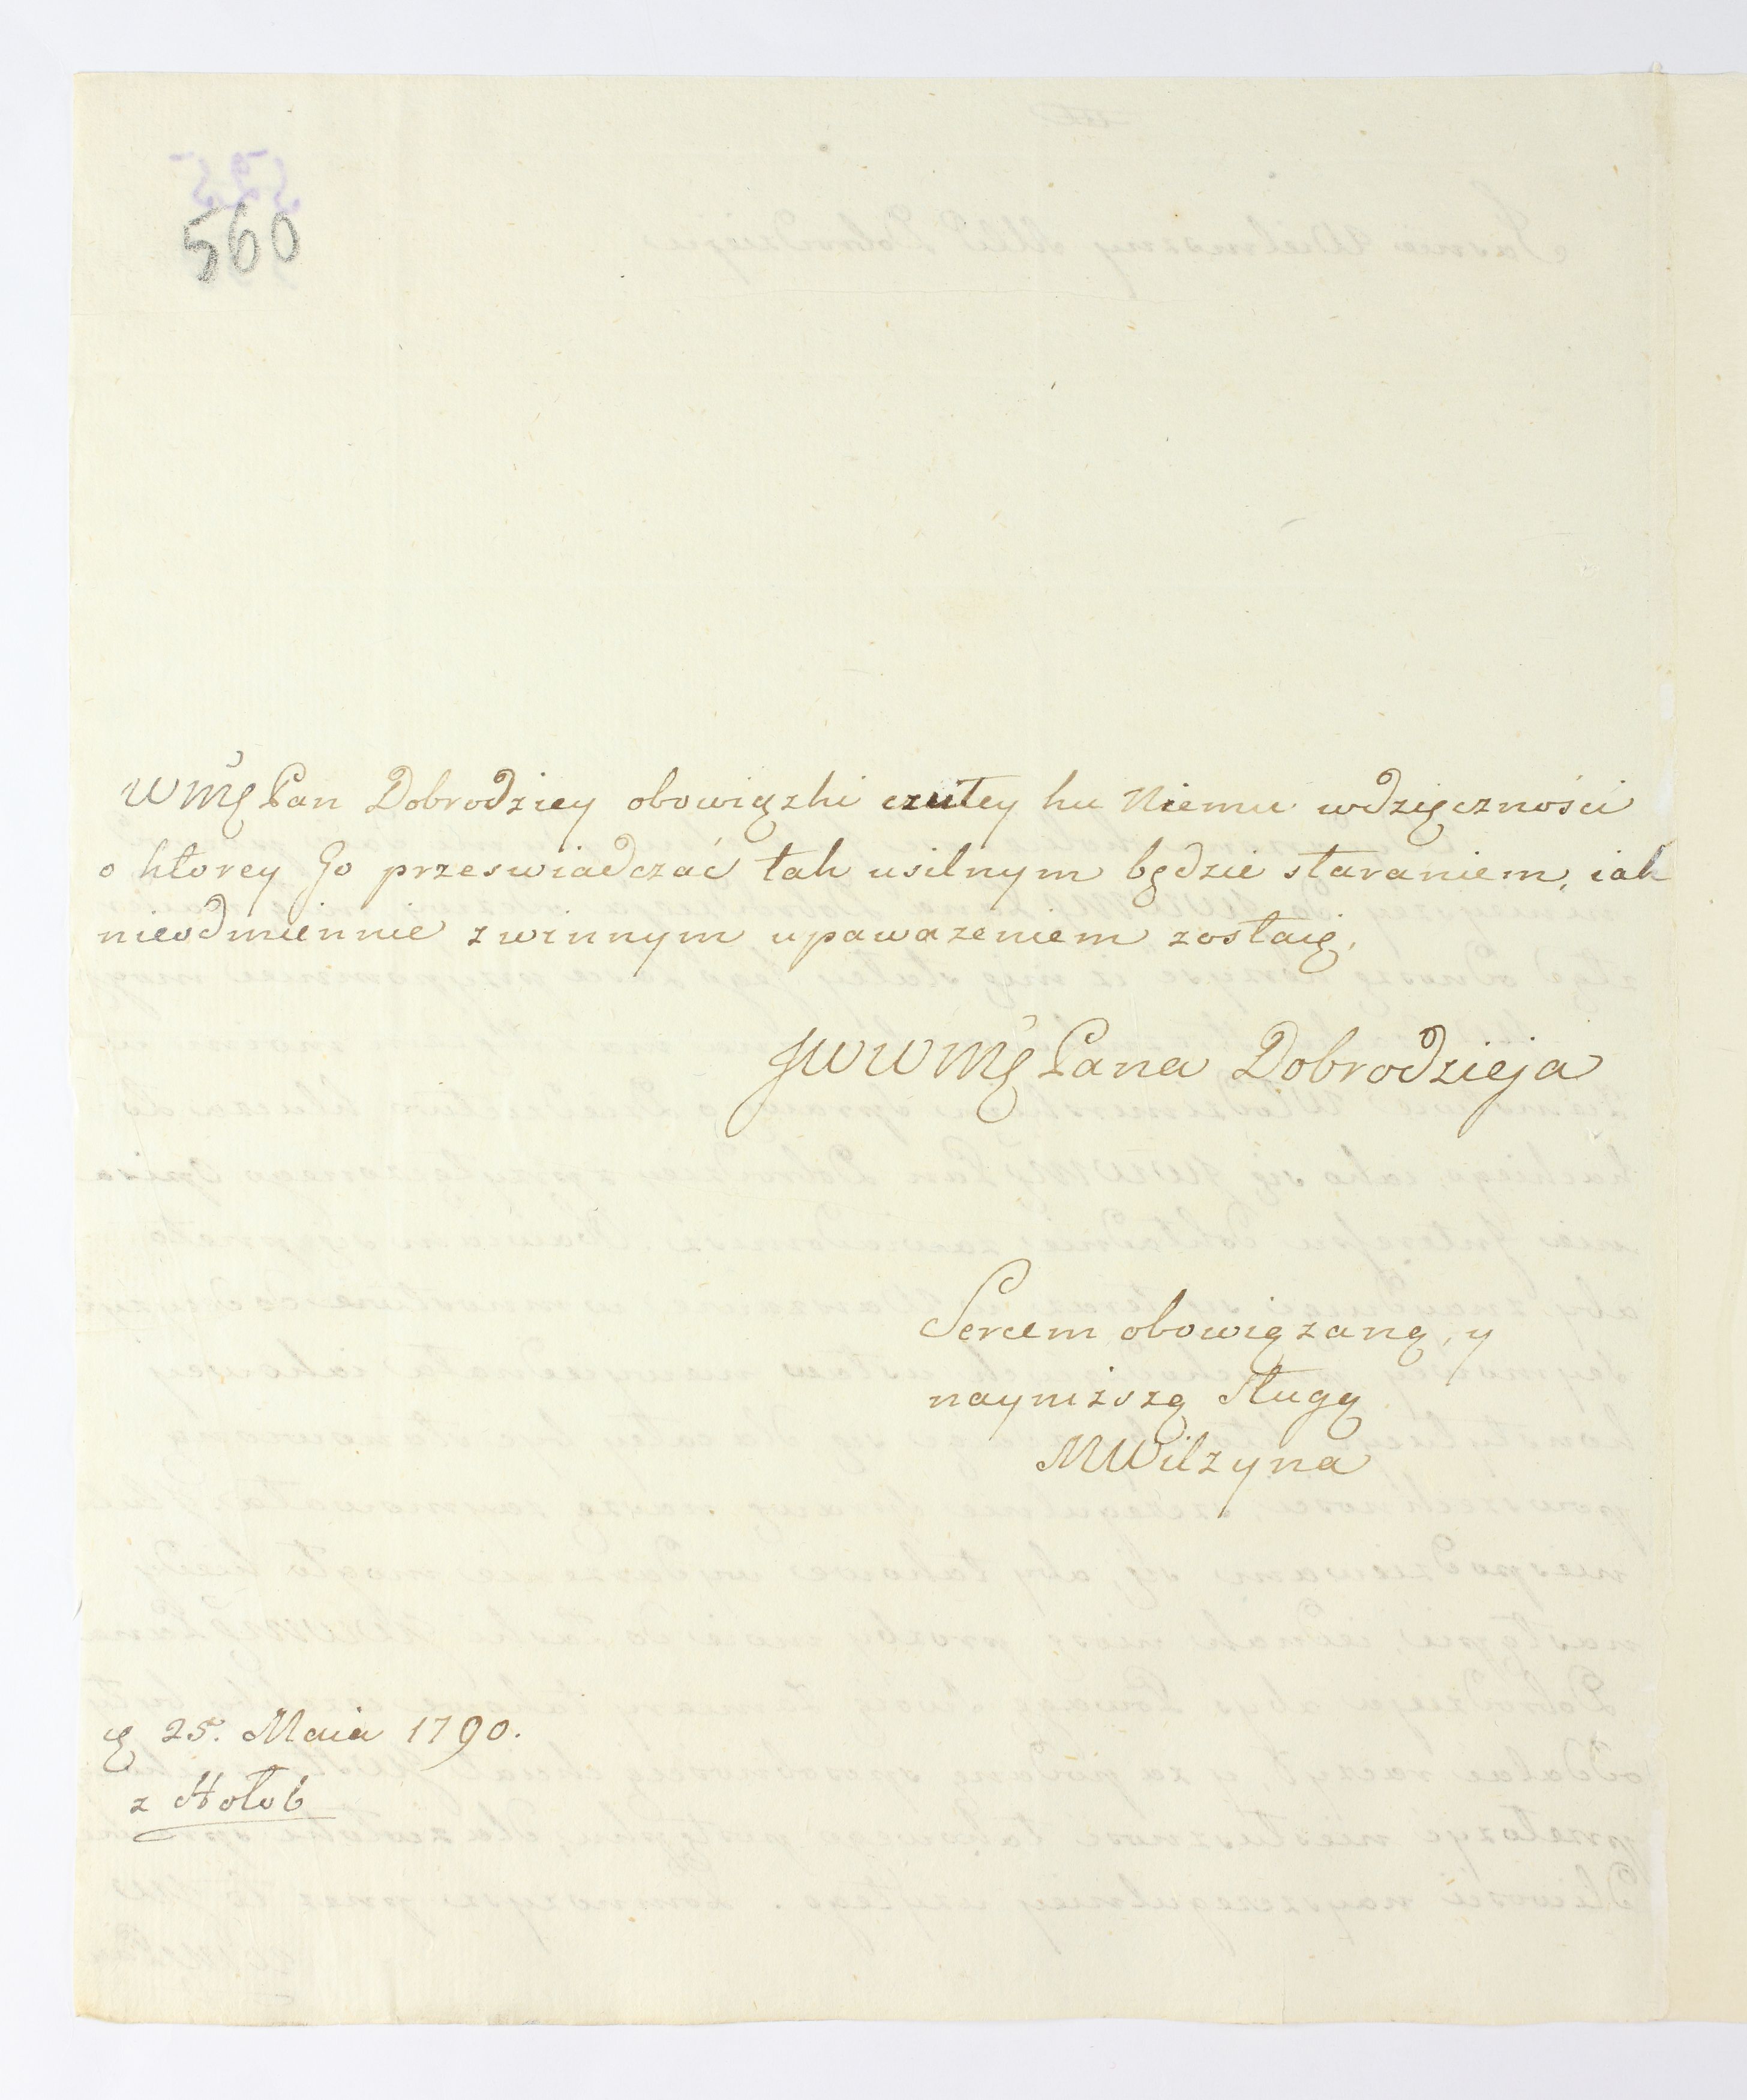 560
WMę Pan Dobrodziey obowiązki czułey ku Niemu wdzięczności
o ktorey Go przeswiadczać tak usilnym będzie staraniem, iak
nieodmiennie z winnym upoważeniem zostaię,
JWWMę Pana Dobrodzieja
Sercem obowiązaną, y
nayniższą Sługą
MWilzyna
25. Maia 1790.
z Hołob